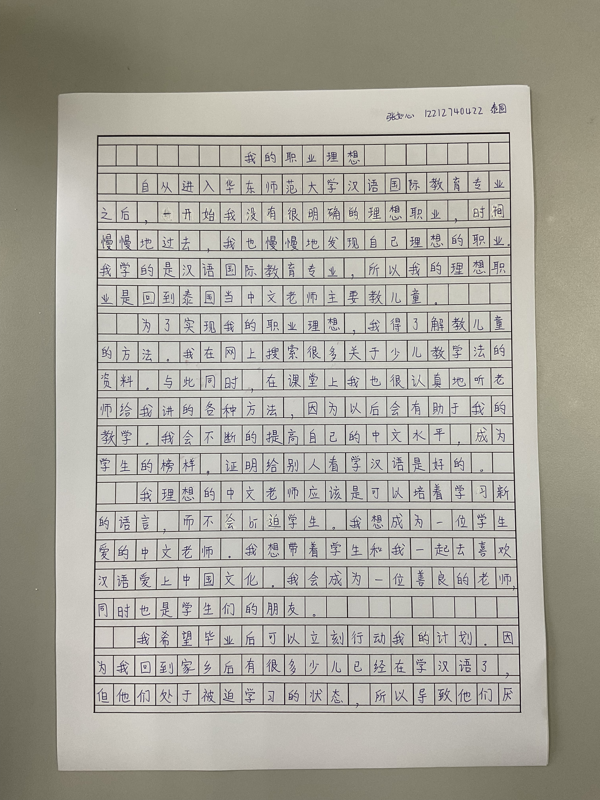 张如心 12212740422 泰国
我的职业理想
自从进入华东师范大学汉语国际教育专业
之后，一开始我没有很明确的理想职业，时间
慢慢地过去，我也慢慢地发现自己理想的职业.
我学的是汉语国际教育专业，所以我的理想职
业是回到泰国当中文老师主要教儿童.
为了实现我的职业理想，我得了解教儿童
的方法.我在网上搜索很多关于少儿教学法的
资料.与此同时，在课堂上我也很认真地听老
师给我讲的各种方法，因为以后会有助于我的
教学.我会不断的提高自己的中文水平，成为
学生的榜样.证明给别人看学汉语是好的。
我理想的中文老师应该是可以培着学习新
的语言，而不会迫学生.我想成为一位学生
爱的中文老师.我想带着学生和我一起去喜欢
汉语爱上中国文化.我会成为一位善良的老师，
同时也是学生们的朋友.
我希望毕业后可以立刻行动我的计划.因
为我回到家乡后有很多少儿已经在学汉语了，
但他们处于被迫学习的状态，所以导致他们厌